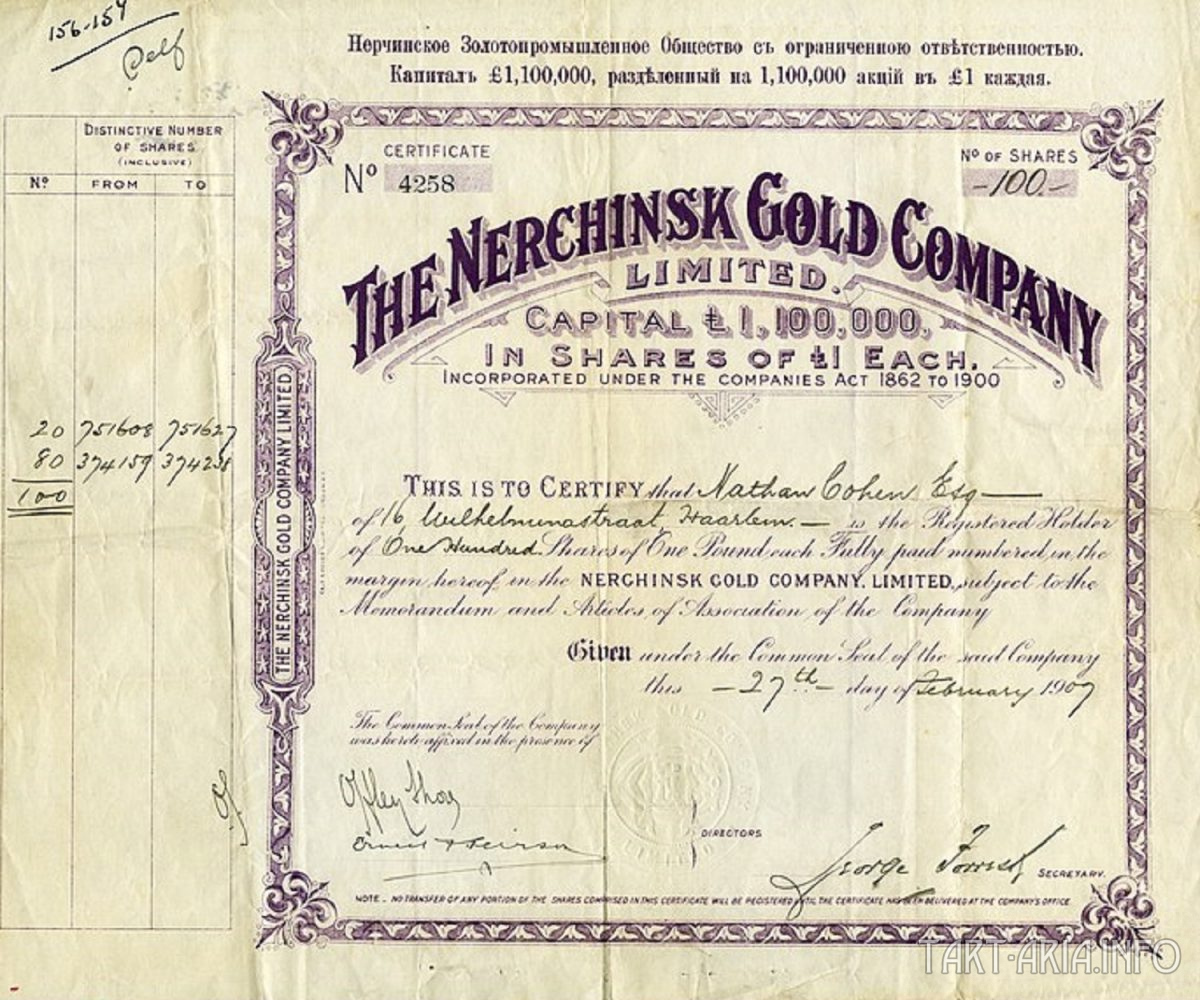 156-157
Нерчинское Золотопромышленное Общество съ ограниченною отвѣтственностью.
Капиталъ £1,100,000, раздѣленный на 1,100,000 акцій въ £1 каждая.
DISTINCTIVE NUMBER
OF SHARES
(INCLUSIVE)
No FROM TO
20 751608 751627
80 374159 374238
100
CERTIFICATE
No 4258
No OF SHARES
-100.-
THE NERCHINSK GOLD COMPANY
LIMITED.
CAPITAL £1,100,000,
IN SHARES OF £1 EACH.
INCORPORATED UNDER THE COMPANIES ACT 1862 TO 1900
THE NERCHINSK GOLD COMPANY LIMITED
THIS IS TO CERTIFY that Nathan Cohen Esq
of 16, Wilhelminastraat, Haarlem. is the Registered Holder
of One Hundred Shares of One Pound each Fully paid numbered in the
margin hereof in the NERCHINSK GOLD COMPANY, LIMITED, subject to the
Memorandum and Articles of Association of the Company
Given under the Common Seal of the said Company
this -27th- day of February 1907
The Common Seal of the Company
was hereto affixed in the presence of
DIRECTORS
George Forrest
SECRETARY.
NOTE - NO TRANSFER OF ANY PORTION OF THE SHARES COMPRISED IN THIS CERTIFICATE WILL BE REGISTERED UNTIL THE CERTIFICATE HAS BEEN DELIVERED AT THE COMPANY'S OFFICE.
TAKT-AKIA.INFO